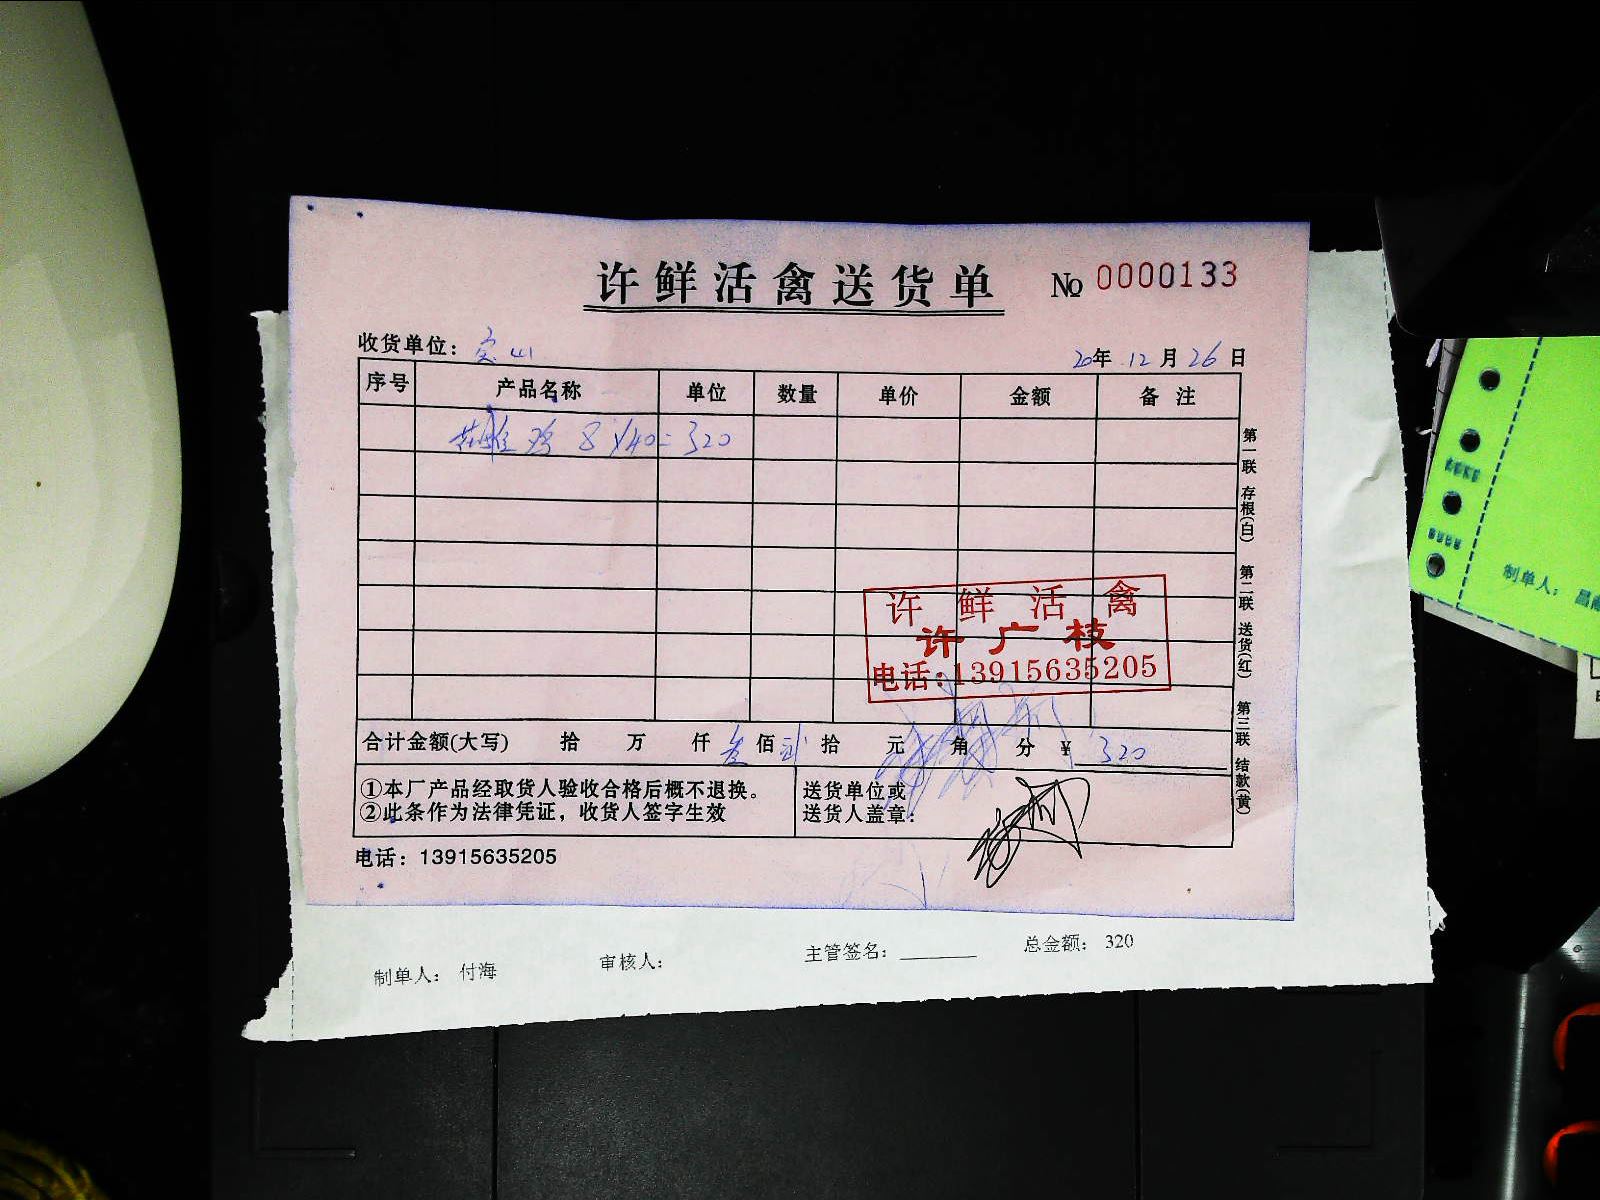 许鲜活禽送货单 № 0000133
收货单位： 20年 12月 26日
序号 产品名称 单位 数量 单价 金额 备注
鸡 8×40=320
许鲜活禽
许广枝
电话:13915635205
合计金额(大写) 拾 万 仟 叁佰 贰拾 元 角 分 ¥ 320
①本厂产品经取货人验收合格后概不退换。
②此条作为法律凭证，收货人签字生效
送货单位或
送货人盖章：
电话：13915635205
第一联 存根(白) 第二联 送货(红) 第三联 结款(黄)
制单人： 付海 审核人： 主管签名： 总金额： 320
制单人：